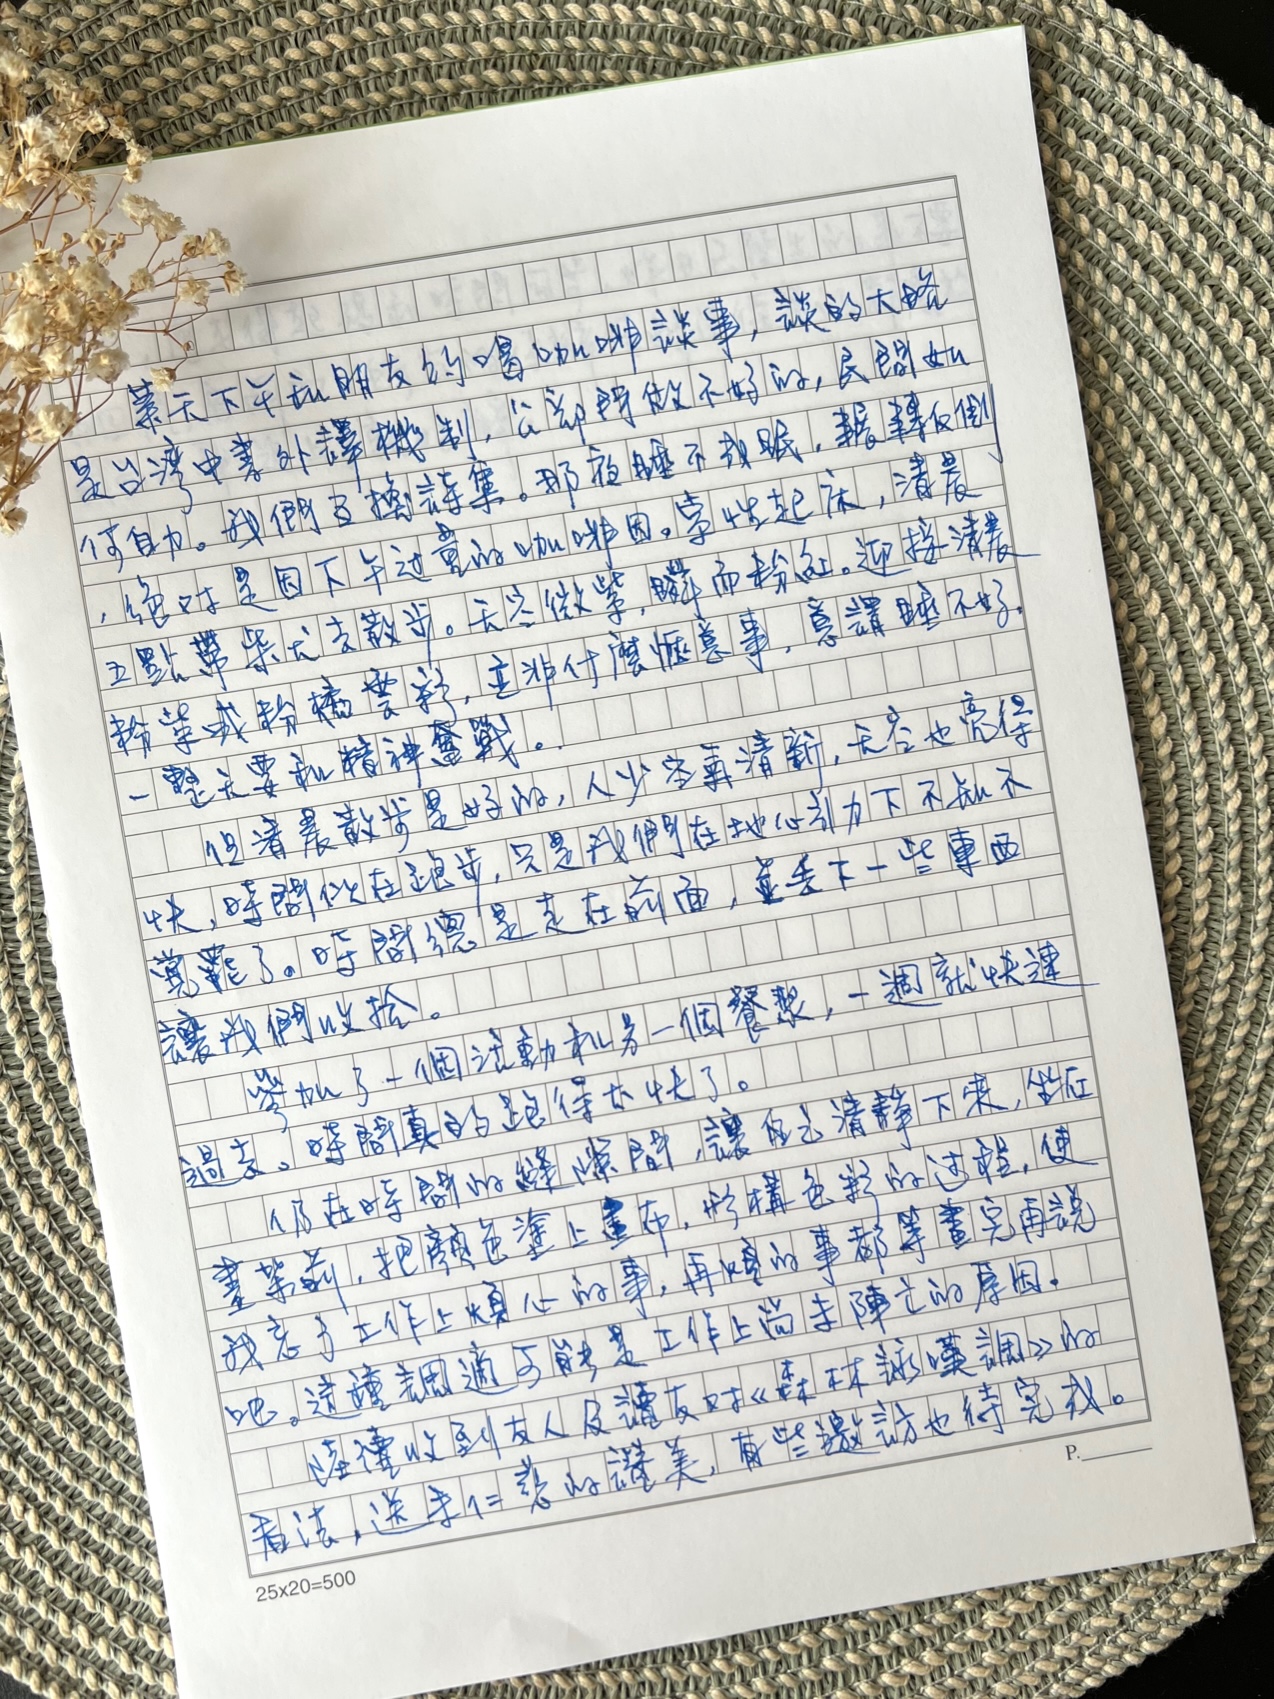 某天下午和朋友約喝咖啡談事，談的大略
是台湾中書外譯機制，公部門做不好的，民間如
何自力。我們互換詩集。那夜睡不成眠，輾轉反側
，絕对是因下午过量的咖啡因。索性起床，清晨
五點帶柴犬去散步。天空微紫，瞬而粉紅。迎接清晨
粉紫或粉橘雲彩，並非什麼愜意事，意謂睡不好，
一整天要和精神奮戰。
但清晨散步是好的，人少空氣清新，天空也亮得
快，時間似在跑步，只是我們在地心引力下不知不
覺罷了。時間總是走在前面，並丟下一些東西
讓我們收拾。
參加了一個活動和另一個餐聚，一週就快速
過去。時間真的跑得太快了。
仍在時間的縫隙間，讓自己清靜下來，坐在
畫架前，把顏色塗上畫布，形構色彩的过程，使
我忘了工作上煩心的事，再煩的事都等畫完再說
吧。這種調適可能是工作上尚未陣亡的原因。
陸續收到友人及讀友对《森林詠嘆調》的
看法，送來仁慈的讚美，有些邀訪也待完成。
P.
25x20=500